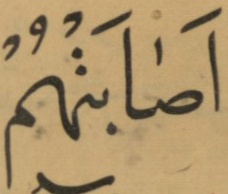 اَصٰابَتْهُمْ